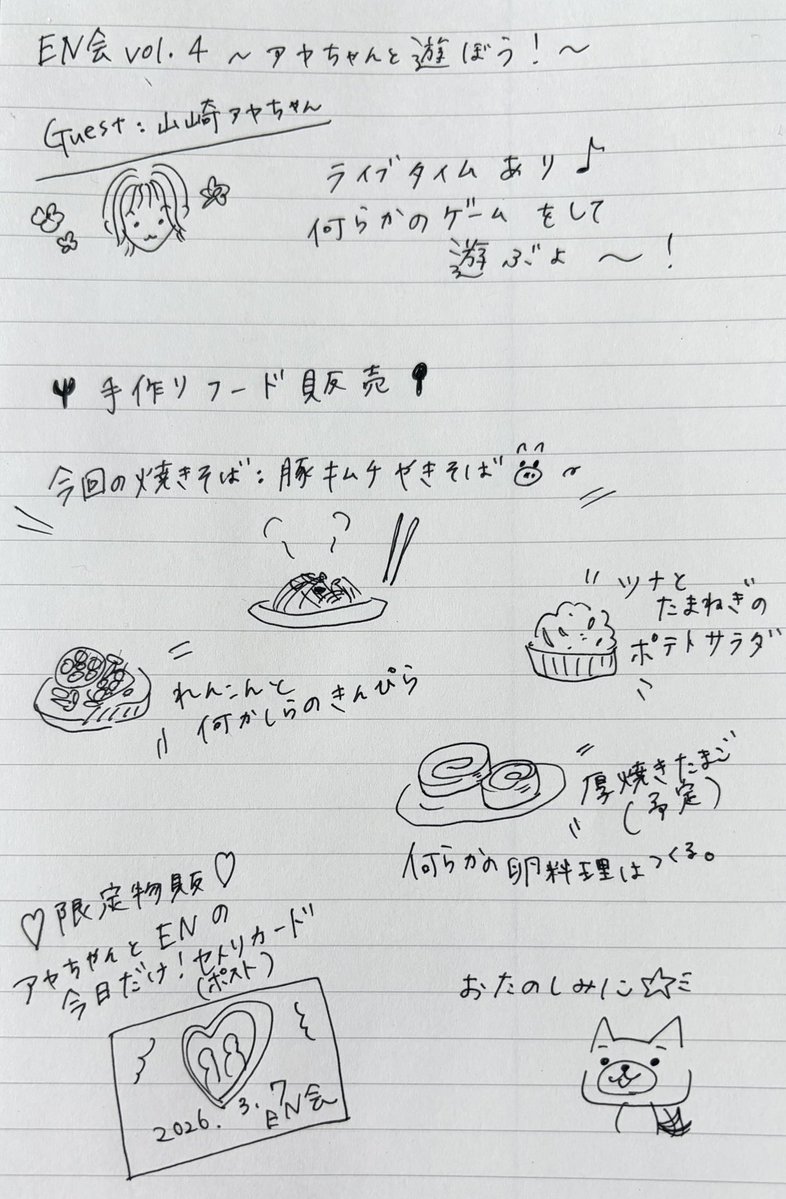 EN会 vol.4 ~アヤちゃんと遊ぼう!~
Guest:山崎アヤちゃん
ライブタイムあり♪
何らかのゲームをして
遊ぶよ~!
手作りフード販売
今回の焼きそば:豚キムチやきそば
ツナと
たまねぎの
ポテトサラダ
れんこんと
何かしらのきんぴら
厚焼きたまご
(予定)
何らかの卵料理はつくる。
♡限定物販♡
アヤちゃんとENの
今日だけ!セトリカード
(ポスト)
2026.3.7
EN会
おたのしみに☆